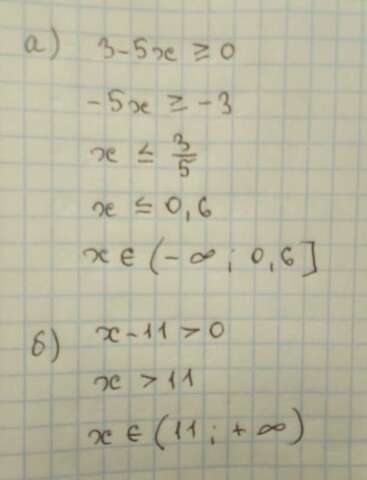 а) 3-5x ≥ 0
-5x ≥ -3
x ≤ 3/5
x ≤ 0,6
x ∈ (-∞; 0,6]
б) x-11 > 0
x > 11
x ∈ (11; +∞)